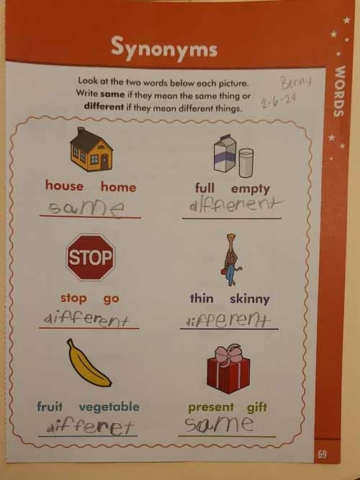 Synonyms
Look at the two words below each picture.
Write same if they mean the same thing or
different if they mean different things.
Benny
2-6-24
WORDS
house home
same
full empty
different
STOP
stop go
different
thin skinny
different
fruit vegetable
differet
present gift
same
69